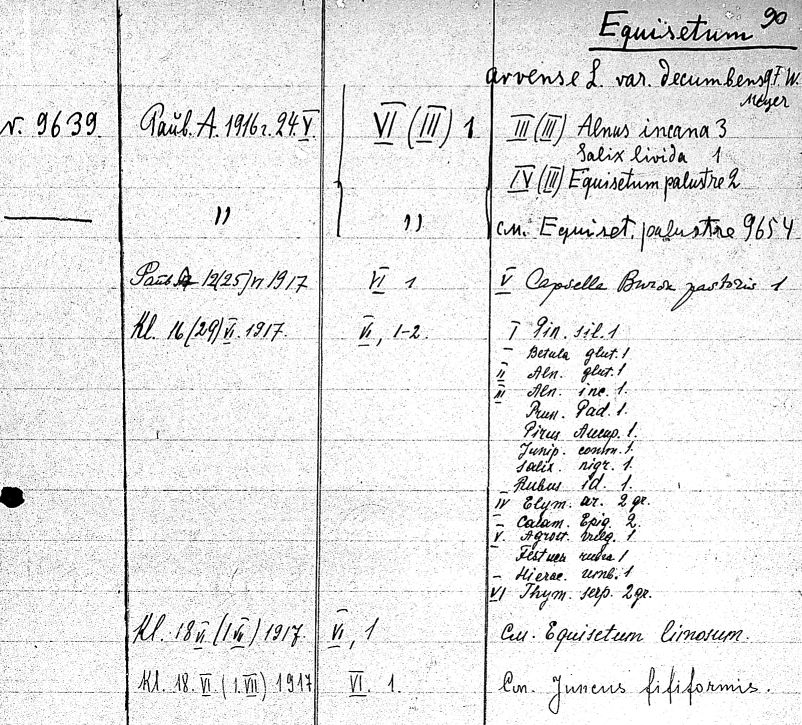 90
Equisetum
arvense L. var. decumbens G.F.W.
Meyer
N. 9639 Paub. A. 1916 г. 24.V. VI (III) 1 III (III) Alnus incana 3
Salix livida 1
IV (III) Equisetum palustre 2
— " " см. Equiset. palustre 9654
12(25) VI 1917 VI 1 V Capsella Bursa pastoris 1
Kl. 16 (29) VI. 1917. VI, 1-2. I Pin. sil. 1
— Betula glut. 1
II Aln. glut. 1
III Aln. inc. 1.
Prun. Pad. 1.
Pirus Aucup. 1.
Junip. comm. 1.
Salix. nigr. 1.
Rubus id. 1.
IV Elym. ar. 2 gr.
— Calam. Epig. 2.
V. Agrost. vulg. 1
Festuca rubra 1
— Hierac. umb. 1
VI Thym. serp. 2 gr.
Kl. 18 VI (1 VII) 1917. VI, 1 См. Equisetum limosum.
Kl. 18. VI (1. VII) 1917 VI. 1. См. Juncus filiformis.